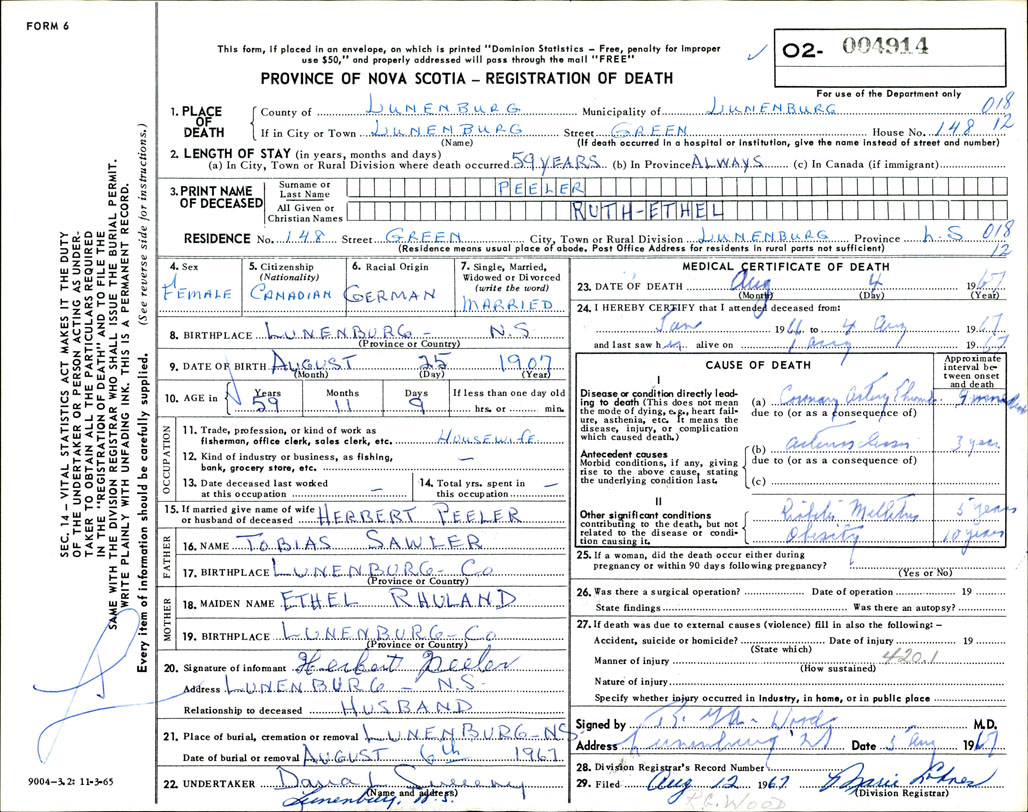 FORM 6
This form, if placed in an envelope, on which is printed "Dominion Statistics – Free, penalty for improper
use $50," and properly addressed will pass through the mail "FREE"
PROVINCE OF NOVA SCOTIA – REGISTRATION OF DEATH
O2- 004914
For use of the Department only
018
12
1. PLACE OF DEATH
County of LUNENBURG Municipality of LUNENBURG
If in City or Town LUNENBURG Street GREEN House No. 148
(Name) (If death occurred in a hospital or institution, give the name instead of street and number)
2. LENGTH OF STAY (in years, months and days)
(a) In City, Town or Rural Division where death occurred 59 YEARS (b) In Province ALWAYS (c) In Canada (if immigrant)
3. PRINT NAME OF DECEASED
Surname or Last Name PEELER
All Given or Christian Names RUTH-ETHEL
RESIDENCE No. 148 Street GREEN City, Town or Rural Division LUNENBURG Province 018
(Residence means usual place of abode. Post Office Address for residents in rural parts not sufficient) 12
4. Sex FEMALE
5. Citizenship (Nationality) CANADIAN
6. Racial Origin GERMAN
7. Single, Married, Widowed or Divorced (write the word) MARRIED
8. BIRTHPLACE LUNENBURG – N.S
(Province or Country)
9. DATE OF BIRTH AUGUST 25 1907
(Month) (Day) (Year)
10. AGE in Years Months Days If less than one day old
59 11 9 hrs. or min.
OCCUPATION
11. Trade, profession, or kind of work as
fisherman, office clerk, sales clerk, etc. HOUSEWIFE
12. Kind of industry or business, as fishing,
bank, grocery store, etc. –
13. Date deceased last worked
at this occupation –
14. Total yrs. spent in
this occupation –
15. If married give name of wife
or husband of deceased HERBERT PEELER
FATHER
16. NAME TOBIAS SAWLER
17. BIRTHPLACE LUNENBURG – Co
(Province or Country)
MOTHER
18. MAIDEN NAME ETHEL RHULAND
19. BIRTHPLACE LUNENBURG – Co
(Province or Country)
20. Signature of informant Herbert Peeler
Address LUNENBURG – N.S.
Relationship to deceased HUSBAND
21. Place of burial, cremation or removal LUNENBURG – NS
Date of burial or removal AUGUST 6th 1967
22. UNDERTAKER Dana L Sweeny
(Name and address)
Lunenburg, N.S.
MEDICAL CERTIFICATE OF DEATH
23. DATE OF DEATH Aug 4 1967
(Month) (Day) (Year)
24. I HEREBY CERTIFY that I attended deceased from:
1966 to 4 Aug 1967
and last saw her alive on 1 Aug 1967
CAUSE OF DEATH
Approximate interval between onset and death
I
Disease or condition directly leading to death (This does not mean the mode of dying, e.g., heart failure, asthenia, etc. It means the disease, injury, or complication which caused death.)
(a) Coronary Artery Thromb.
due to (or as a consequence of)
Antecedent causes
Morbid conditions, if any, giving rise to the above cause, stating the underlying condition last.
(b) 3 years
due to (or as a consequence of)
(c)
II
Other significant conditions contributing to the death, but not related to the disease or condition causing it.
Mellitus 5 years
Obesity 10 years
25. If a woman, did the death occur either during
pregnancy or within 90 days following pregnancy?
(Yes or No)
26. Was there a surgical operation? Date of operation 19
State findings Was there an autopsy?
27. If death was due to external causes (violence) fill in also the following: –
Accident, suicide or homicide? Date of injury 19
(State which) 420.1
Manner of injury
(How sustained)
Nature of injury
Specify whether injury occurred in industry, in home, or in public place
Signed by Woods M.D.
Address Lunenburg Date 5 Aug 1967
28. Division Registrar's Record Number
29. Filed Aug 12 1967
(Division Registrar)
R.G. WOOD
SEC. 14 – VITAL STATISTICS ACT MAKES IT THE DUTY
OF THE UNDERTAKER OR PERSON ACTING AS UNDER-
TAKER TO OBTAIN ALL THE PARTICULARS REQUIRED
IN THE "REGISTRATION OF DEATH" AND TO FILE THE
SAME WITH THE DIVISION REGISTRAR WHO SHALL ISSUE THE BURIAL PERMIT.
WRITE PLAINLY WITH UNFADING INK. THIS IS A PERMANENT RECORD.
Every item of information should be carefully supplied. (See reverse side for instructions.)
9004–3.2: 11-3-65